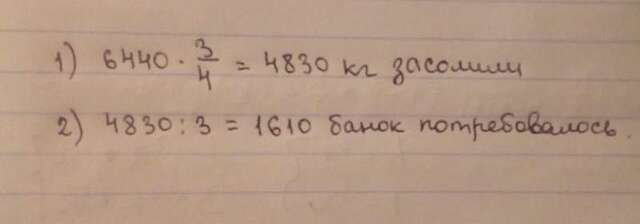 1) 6440 · 3/4 = 4830 кг засолили
2) 4830 : 3 = 1610 банок потребовалось.